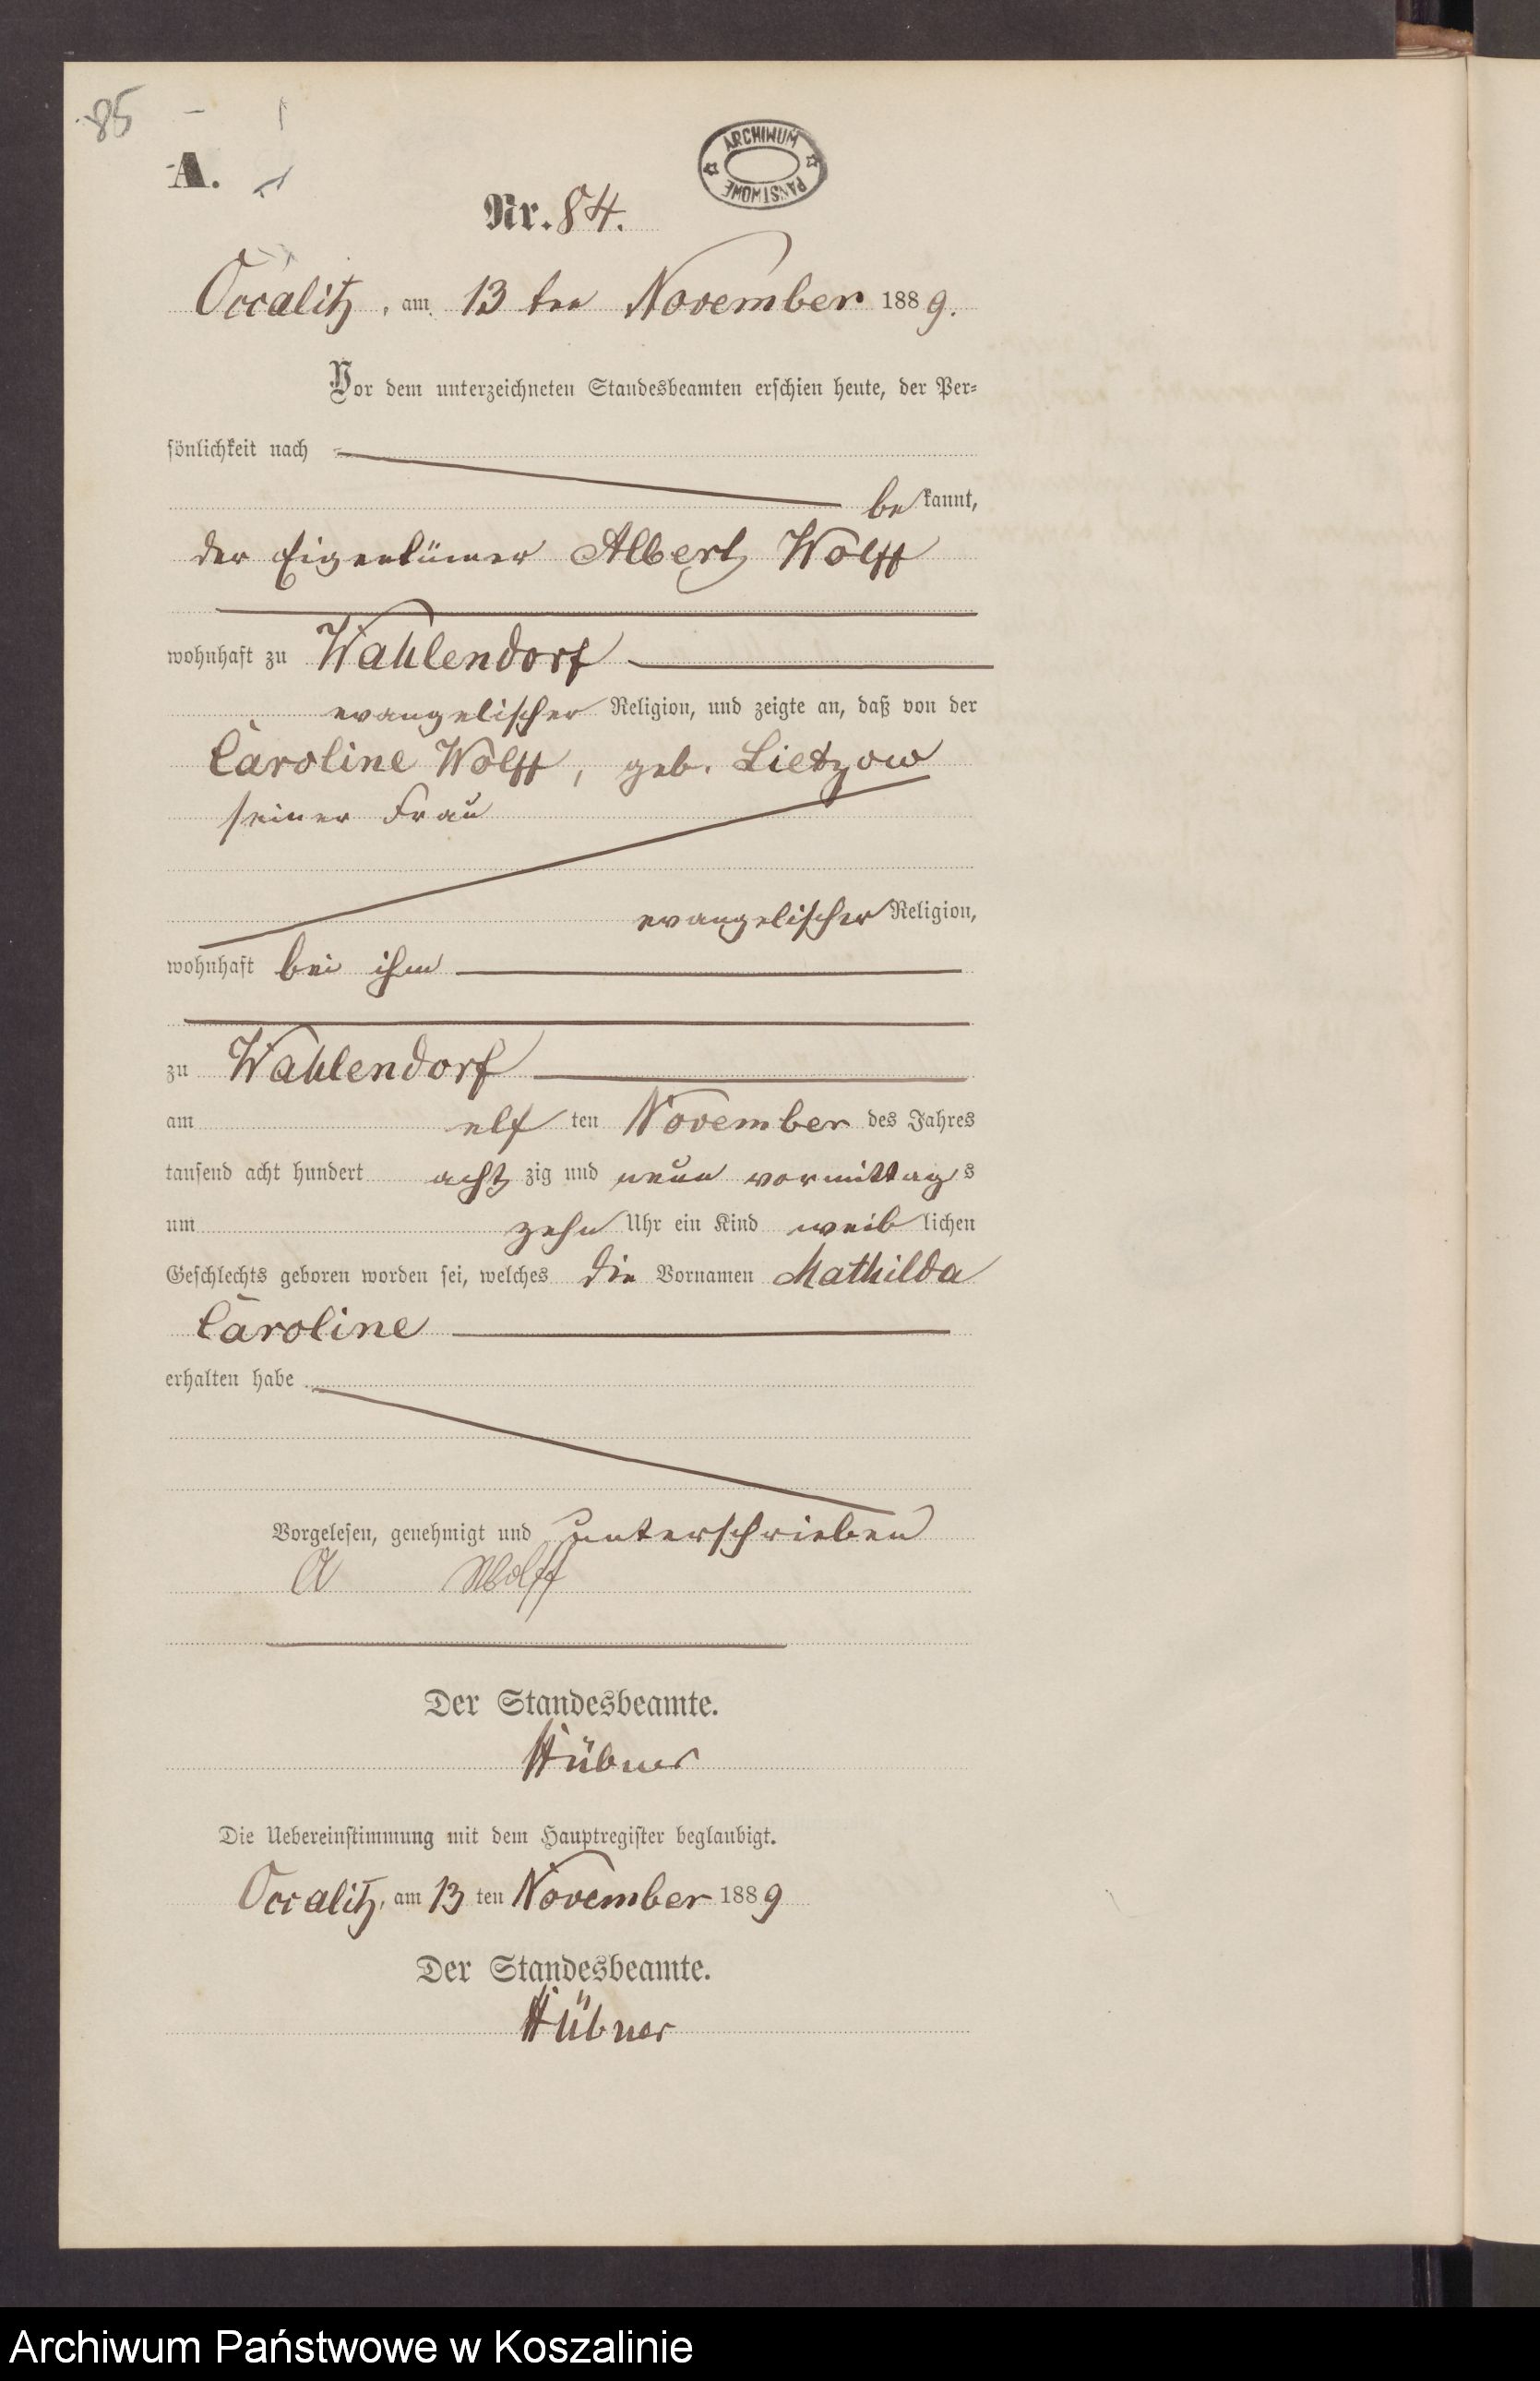 85
A.
ARCHIWUM PAŃSTWOWE
Nr. 84.
Occalitz, am 13 ten November 1889.
Vor dem unterzeichneten Standesbeamten erschien heute, der Per-
sönlichkeit nach
bekannt,
der Eigentümer Albert Wolff
wohnhaft zu Wahlendorf
evangelischer Religion, und zeigte an, daß von der
Caroline Wolff, geb. Lietzow
seiner Frau
evangelischer Religion,
wohnhaft bei ihm
zu Wahlendorf
am elf ten November des Jahres
tausend acht hundert acht zig und neun vormittags
um zehn Uhr ein Kind weiblichen
Geschlechts geboren worden sei, welches die Vornamen Mathilda
Caroline
erhalten habe
Vorgelesen, genehmigt und unterschrieben
A Wolff
Der Standesbeamte.
Hübner
Die Uebereinstimmung mit dem Hauptregister beglaubigt.
Occalitz, am 13 ten November 1889
Der Standesbeamte.
Hübner
Archiwum Państwowe w Koszalinie